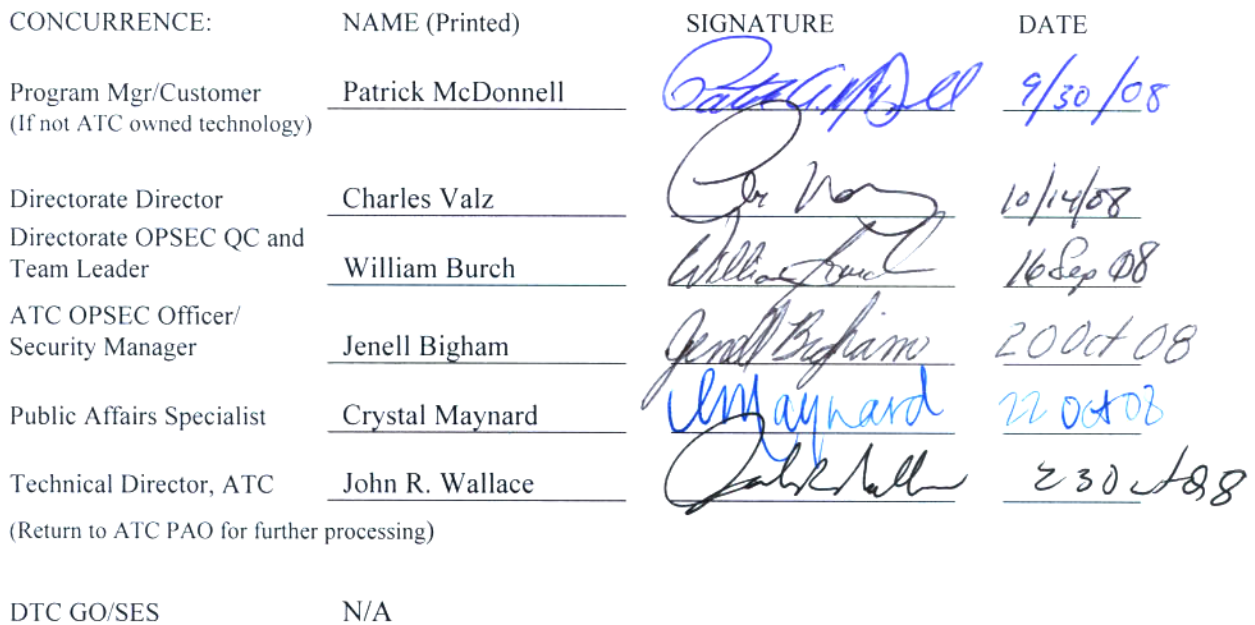 CONCURRENCE: NAME (Printed) SIGNATURE DATE
Program Mgr/Customer Patrick McDonnell Patrick A. McDonell 9/30/08
(If not ATC owned technology)
Directorate Director Charles Valz 10/14/08
Directorate OPSEC QC and
Team Leader William Burch William Burch 16 Sep 08
ATC OPSEC Officer/
Security Manager Jenell Bigham Jenell Bigham 20 Oct 08
Public Affairs Specialist Crystal Maynard CMaynard 22 Oct 08
Technical Director, ATC John R. Wallace John R Wallace 23 Oct 08
(Return to ATC PAO for further processing)
DTC GO/SES N/A